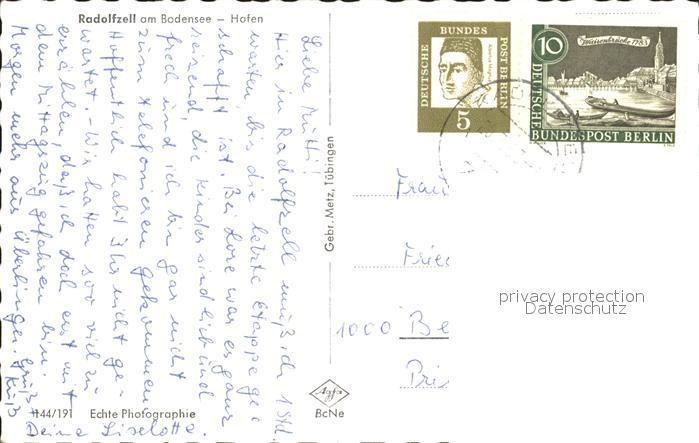 Radolfzell am Bodensee – Hafen
Liebe Mutti!
Hier in Radolfzell muß ich 1 Std
warten, bis die letzte Etappe ge-
schafft ist. Bei Lore war es ganz
reizend, die Kinder sind lieb und
frech und ich bin gar nicht
zum telefonieren gekommen.
Hoffentlich habt Ihr nicht ge-
wartet. – Wir hatten soo viel zu
erzählen, daß ich doch erst mit
dem Mittagszug gefahren bin.
Morgen mehr aus Überlingen. Gruß +
Kuß
Deine Liselotte.
144/191 Echte Photographie
Gebr. Metz, Tübingen
Agfa
BcNe
DEUTSCHE BUNDES POST BERLIN
5
10
Weisenbrücke 1783
DEUTSCHE
BUNDESPOST BERLIN
Frau
Frie
1000 Be
privacy protection
Datenschutz